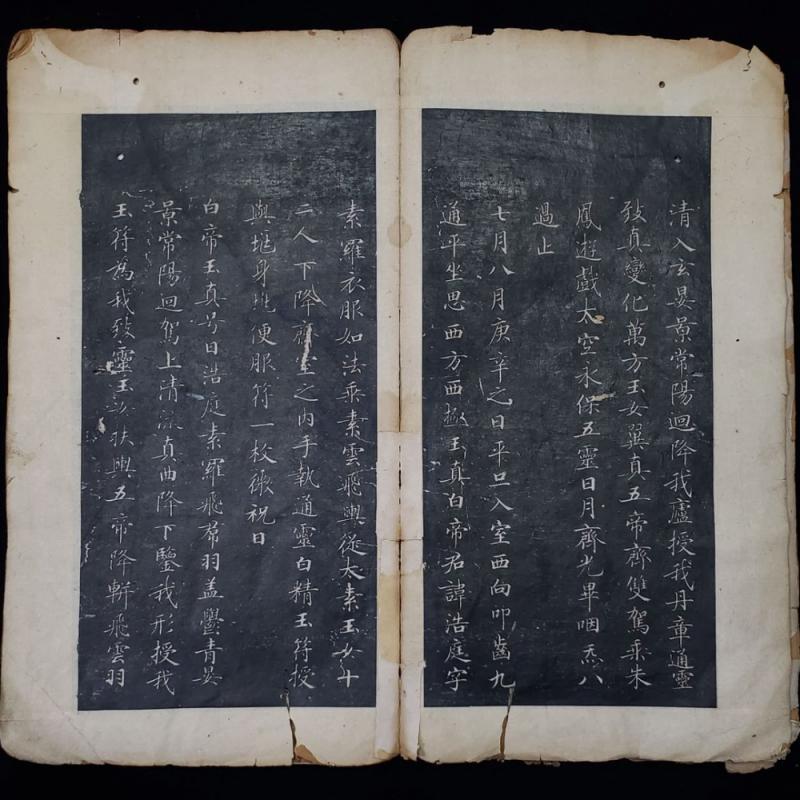 清入玄晏景常陽迴降我廬授我丹章通靈
致真變化萬方玉女翼真五帝齊雙駕乘朱
鳳遊戲太空永保五靈日月齊光畢咽炁八
過止
七月八月庚辛之日平旦入室西向叩齒九
通平坐思西方西極玉真白帝君諱浩庭字
素羅衣服如法乘素雲飛輿從太素玉女十
二人下降齋室之內手執通靈白精玉符授
與堀身堀便服符一枚微祝曰
白帝玉真号曰浩庭素羅飛帬羽盖鬱青晏
景常陽迴駕上清 真曲降下鑒我形授我
玉符為我致靈玉女扶輿五帝降軿飛雲羽